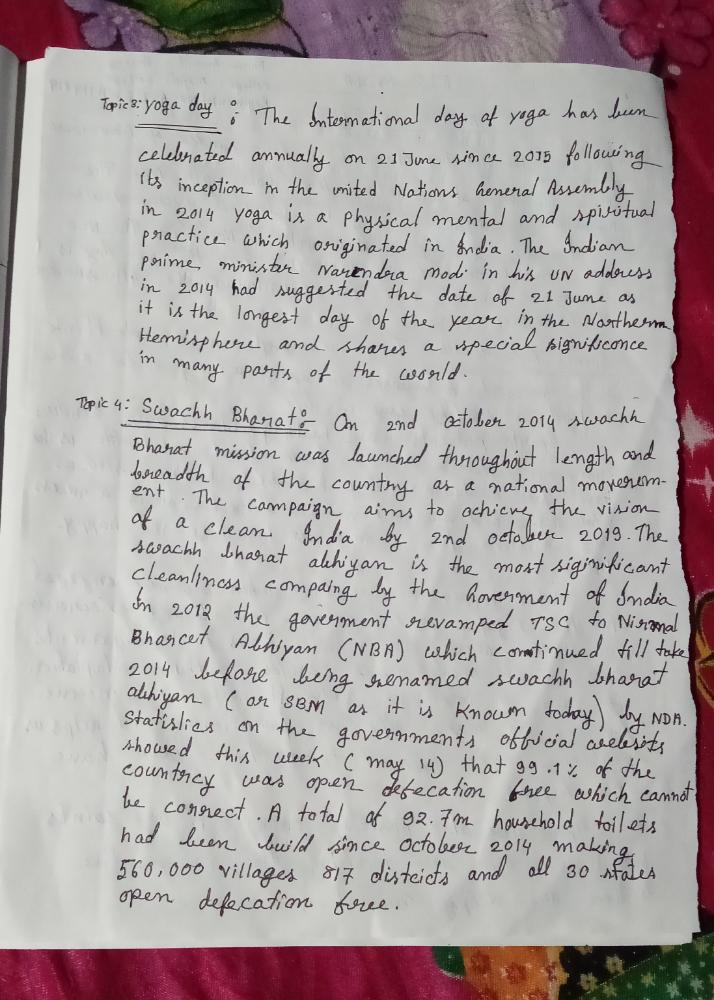 Topic 3: yoga day : The International day of yoga has been
celebrated annually on 21 June since 2015 following
its inception in the united Nations General Assembly
in 2014 yoga is a physical mental and spiritual
practice which originated in India. The Indian
prime minister Narendra modi in his UN address
in 2014 had suggested the date of 21 June as
it is the longest day of the year in the Northern
Hemisphere and shares a special significance
in many parts of the world.
Topic 4: Swachh Bharat: On 2nd october 2014 swachh
Bharat mission was launched throughout length and
breadth of the country as a national moverem-
ent. The campaign aims to achieve the vision
of a clean India by 2nd october 2019. The
swachh bharat abhiyan is the most siginificant
cleanliness compaing by the Goverment of India
In 2012 the goverment revamped TSC to Nirmal
Bharcet Abhiyan (NBA) which continued till take
2014 before being renamed swachh bharat
abhiyan (or SBM as it is known today) by NDA.
Statislics on the governments official websits
showed this week (may 14) that 99.1% of the
countrcy was open defecation free which cannot
be correct. A total of 92.7m household toilets
had been build since October 2014 making
560,000 villages 817 distcicts and all 30 states
open defecation free.